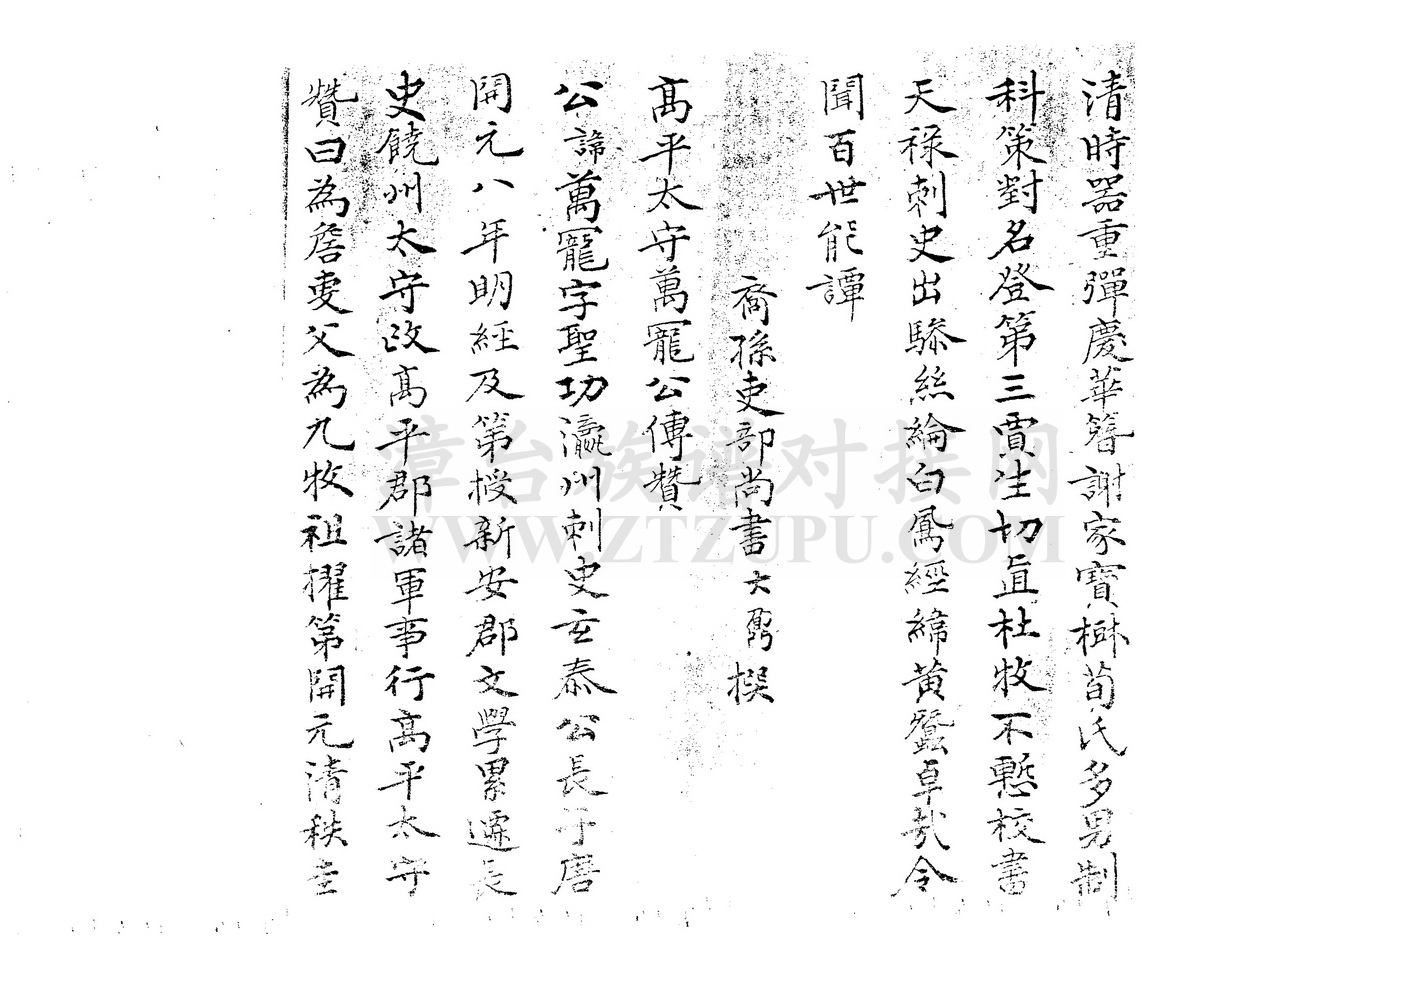 清時器重彈慶華簪謝家寶樹荀氏多男制
科策對名登第三賈生切直杜牧不慙校書
天祿刺史出驂絲綸白鳳經緯黃蠶卓哉令
聞百世能譚
裔孫吏部尚書大撰
高平太守萬寵公傳贊
公諱萬寵字聖功瀛州刺史玄泰公長子唐
開元八年明經及第授新安郡文學累遷長
史饒州太守改高平郡諸軍事行高平太守
贊曰為詹叟父為九牧祖擢第開元清秩
章台族谱对接网
WWW.ZTZUPU.COM